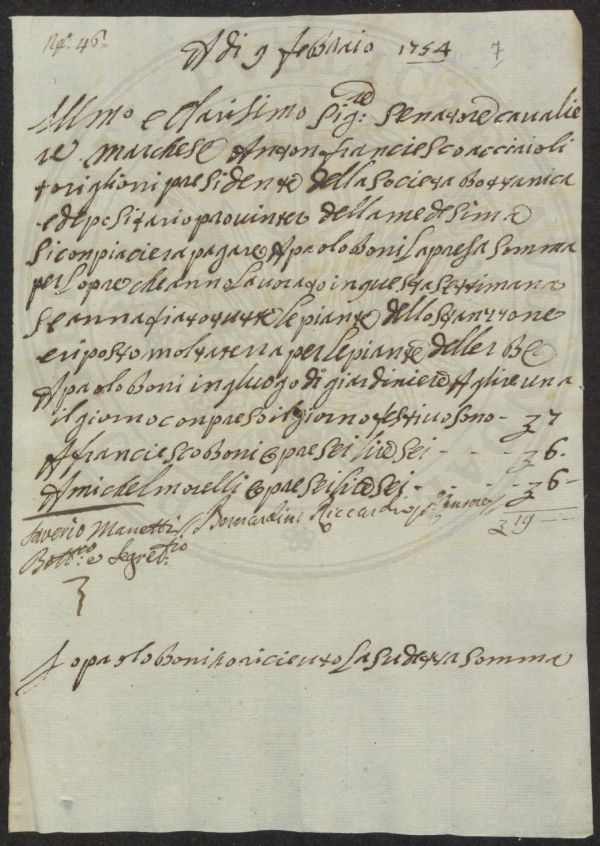 No: 46=
A di 9 febbraio 1754 7
Illmo e Clarisimo Sig:re Senatore Cavalie
re Marchese Anton franciesco acciaioli
toriglioni presidente della societa Bottanica
e depositario provinter della medesima
si conpiaciera pagare A paolo boni la presa somma
per lopre che anno lavorato in questa settimana
Se annafiato tutte le piante dello stanzone
e riposto molta terra per le piante dell erBe
A paolo boni in gluogo di giardiniere A lire una
il giorno conpreso il giorno festivo sono - 7
A franciesco boni 6 pre sei lire sei - - - - 6.
A michel morelli 6 pre sei lire sei - - - 6 -
Saverio Manetti Bernardino Riccardi
19 - -
Bott:co e Segret:rio
Io paolo boni o ricievuto la sudetta somma